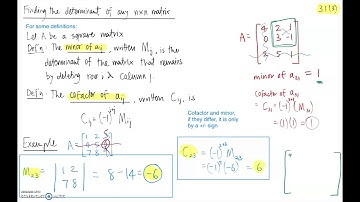 Finding the determinant of any n×n matrix
3.1 (3)
For some definitions:
Let A be a square matrix
Defn. The minor of aij, written Mij, is the
determinant of the matrix that remains
by deleting row i & column j.
Defn. The cofactor of aij, written Cij, is
Cij = (-1)^(i+j) Mij
Example A =
1 2 5
7 8 9
M23 = | 1 2 | = 8 - 14 = -6
| 7 8 |
A = 4 2 1
0 3 -1
5 -1
minor of a31 = 1
cofactor of a31
C31 = (-1)^(3+1) (M31)
= (1)(1) = 1
Cofactor and minor,
if they differ, it is only
by a +/- sign
C23 = (-1)^(2+3) M23
= (-1)^5 (-6) = 6